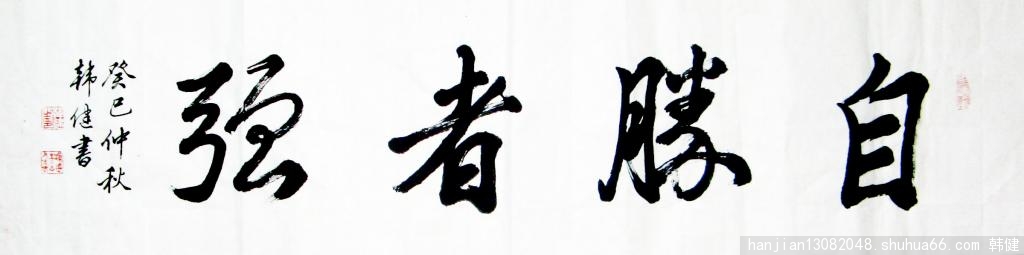 自勝者强
癸巳仲秋
韩健書
hanjian13082048.shuhua66.com 韩健